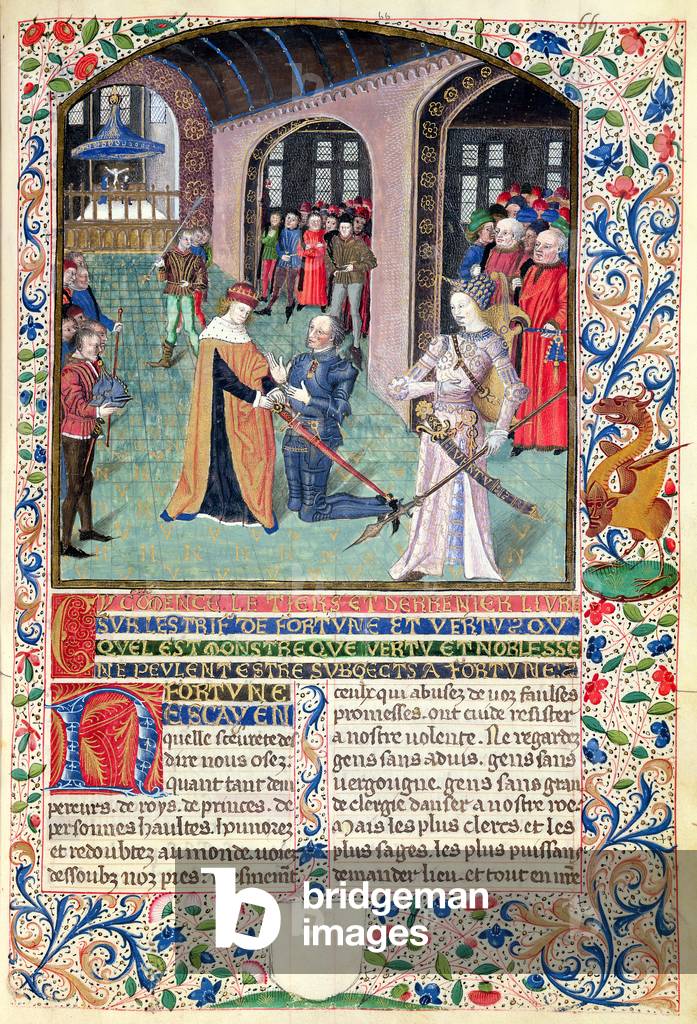 CY COMENCE LE TIERS ET DERRENIER LIVRE
SUR LES TRIFZ DE FORTUNE ET VERTUZ OU
QUEL EST MONSTRE QUE VERTU ET NOBLESSE
NE PEULENT ESTRE SUBGECTS A FORTUNE
FORTUNE
quelle
dire nous osez
quant tant dem
pereurs. de roys. de princes. de
personnes haultes. honnorez
et redoubtez au monde. voiez
dessoubz noz piez
ceulx qui abusez de noz faulses
promesses. ont cuide resister
a nostre volente. Ne regardez
gens sans aduis. gens sans
vergongne. gens sans gran
de clergie danser a nostre roe.
Mais les plus clercs. et les
plus sages. les plus puissans
demander lieu. et tout en
b
bridgeman
images